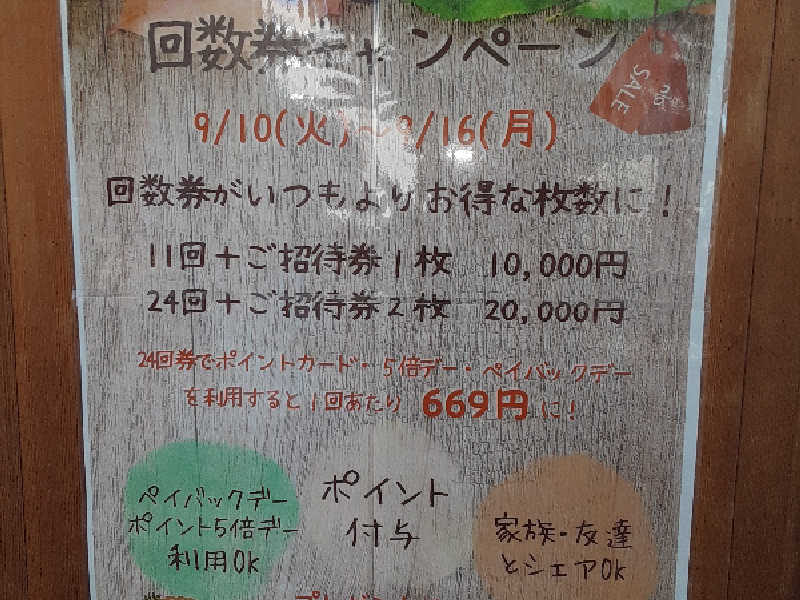 回数券キャンペーン
SALE
9/10(火)～9/16(月)
回数券がいつもよりお得な枚数に！
11回＋ご招待券1枚 10,000円
24回＋ご招待券2枚 20,000円
24回券でポイントカード・5倍デー・ペイバックデー
を利用すると1回あたり 669円に！
ペイバックデー
ポイント5倍デー
利用OK
ポイント
付与
家族・友達
とシェアOK